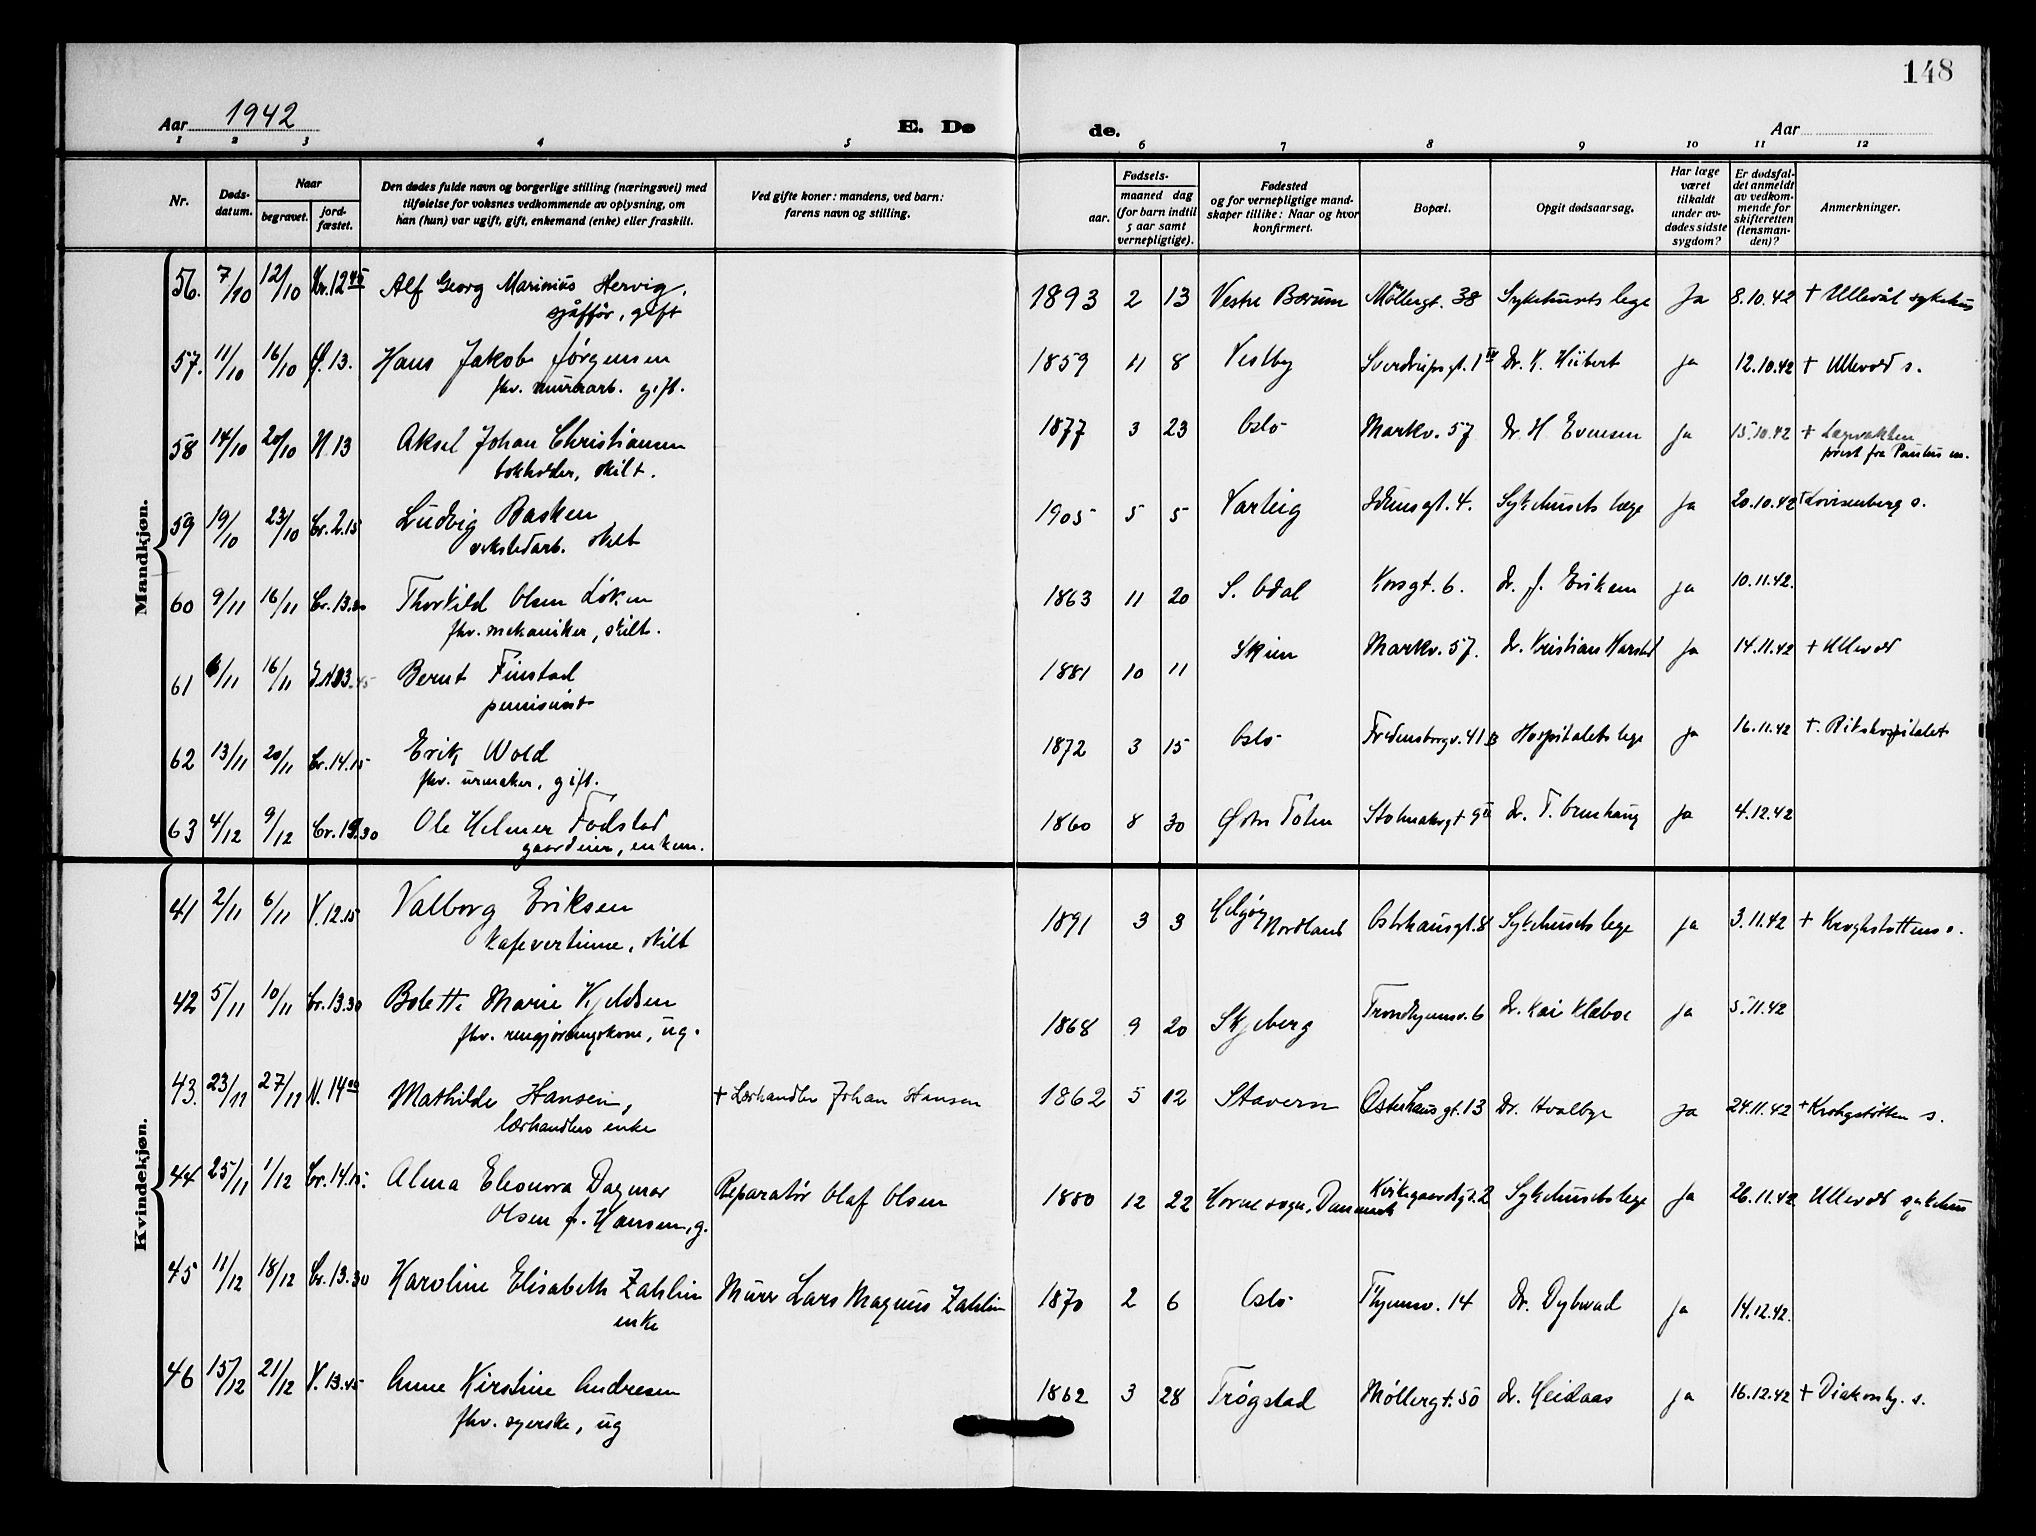 148
Aar 1942
E. Dø
de.
Aar
1 2 3 4 5 6 7 8 9 10 11 12
Nr.
Døds-
datum.
Naar
begravet.
jord-
fæstet.
Den dødes fulde navn og borgerlige stilling (næringsvei) med
tilføielse for voksnes vedkommende av oplysning, om
han (hun) var ugift, gift, enkemand (enke) eller fraskilt.
Ved gifte koner: mandens, ved barn:
farens navn og stilling.
Fødsels-
aar.
maaned dag
(for barn indtil
5 aar samt
vernepligtige).
Fødested
og for vernepligtige mand-
skaper tillike: Naar og hvor
konfirmert.
Bopæl.
Opgit dødsaarsag.
Har læge
været
tilkaldt
under av-
dødes sidste
sygdom?
Er dødsfal-
det anmeldt
av vedkom-
mende for
skifteretten
(lensman-
den)?
Anmerkninger.
Mandkjøn.
56. 7/10 12/10 Kr. 12 45 Alf Georg Marinius Hervig, 1893 2 13 Vestre Bærum Møllergt. 38 Sykehusets lege Ja 8.10.42 + Ullevål sykehus
sjåffør, gift
57. 11/10 16/10 13. Hans Jakob Jørgensen 1859 11 8 Vestby Sverdrupsgt. 1 Dr. K. Hübert ja 12.10.42 + Ullevål s.
fhv. murerarb. gift.
58 14/10 20/10 N 13 Aksel Johan Christiansen 1877 3 23 Oslo Markv. 57 Dr. H Evensen ja 15.10.42 + Lægevakten
bokholder, skilt. prest fra Paulus m.
59 19/10 23/10 Cr. 2.15 Ludvig Basken 1905 5 5 Varteig Idunsgt. 4. Sykehusets læge ja 20.10.42 + Lovisenberg s.
verkstedarb. skilt
60 9/11 16/11 Cr. 13.30 Thorkild Olsen Løken 1863 11 20 S. Odal Korsgt. 6. Dr. J. Eriksen ja 10.11.42.
fhv. mekaniker, skilt.
61 6/11 16/11 Bernt Finstad 1881 10 11 Skien Markv. 57. Dr. Kristian Harstad ja 14.11.42 + Ullevål
pensionist
62 13/11 20/11 Cr. 14.15 Erik Wold 1872 3 15 Oslo Fredensborgv. 41 B Hospitalets lege ja 16.11.42 +. Rikshospitalet
fhv. urmaker, gift.
63 4/12 9/12 Cr. 15.30 Ole Helmer Fodstad 1860 8 30 Østre Toten Stolmakergt 9 II Dr. T. Ormhaug ja 4.12.42
gaardeier, enkem.
Kvindekjøn.
41 2/11 6/11 V. 12.15 Valborg Eriksen 1891 3 3 Helgøy Nordland Osterhausgt. 8 Sykehusets lege ja 3.11.42 + Kroghstøttens s.
kafevertinne, skilt
42 5/11 10/11 Cr. 13.30 Bolette Marie Kjeldsen 1868 9 20 Skjeberg Trondhjemsv. 6 Dr. Kai Klaboe ja 5.11.42
fhv. rengjøringskone, ug.
43. 23/11 27/11 N. 14 00 Mathilde Hansen, + Lærhandler Johan Hansen 1862 5 12 Stavern Osterhausgt. 13 Dr. Hvalbye ja 24.11.42 + Krohgstøtten s.
lærhandlers enke
44 25/11 1/12 Cr. 14.15. Alma Eleonora Dagmar Reparatør Olaf Olsen 1880 12 22 Horne sogn, Danmark Kirkegaardsgt. 2 Sykehusets lege ja 26.11.42 Ullevål sykehus
Olsen f. Hansen, g.
45 11/12 18/12 Cr. 13.30 Karoline Elisabeth Zahlin Murer Lars Magnus Zahlin 1870 2 6 Oslo Thjemsv. 14 Dr. Dybwad ja 14.12.42.
enke
46 15/12 21/12 V. 13.45 Anne Kirstine Andresen 1862 3 28 Trøgstad Møllergt. 50 Dr. Heidaas ja 16.12.42 + Diakonhj. s.
fhv. syerske, ug